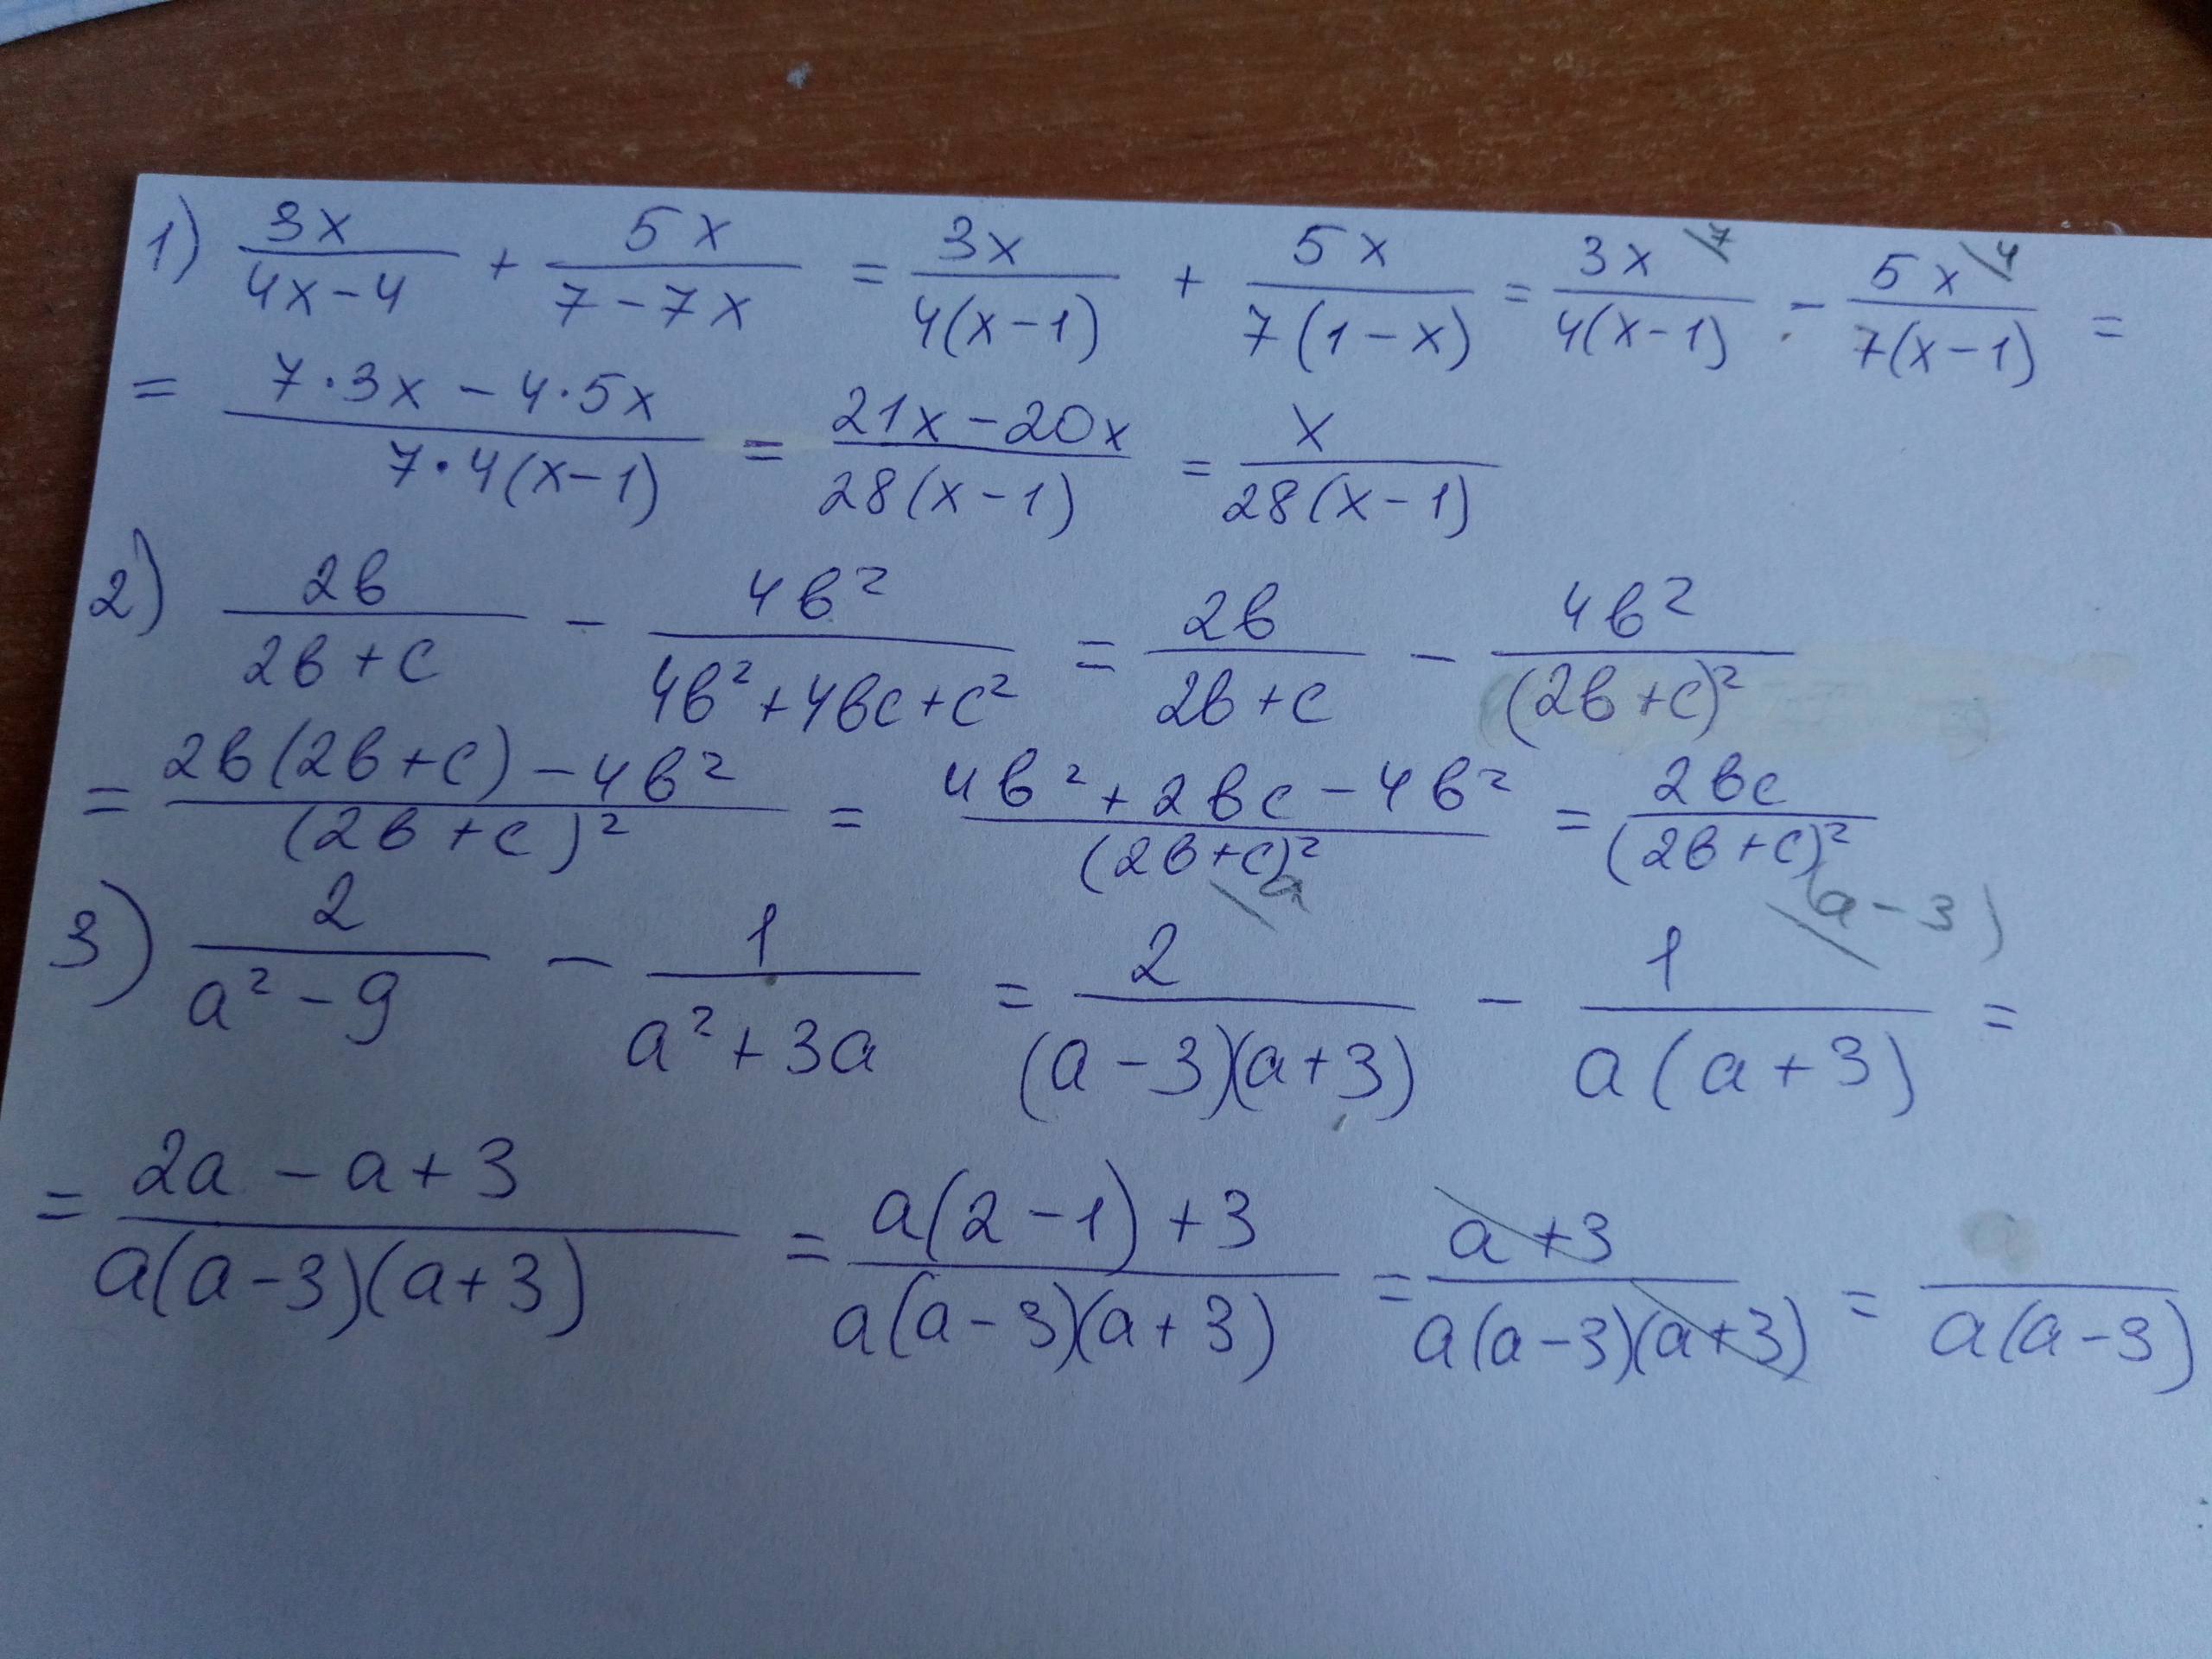 1) 3x/(4x-4) + 5x/(7-7x) = 3x/(4(x-1)) + 5x/(7(1-x)) = 3x\7/(4(x-1)) - 5x\4/(7(x-1)) =
= (7·3x-4·5x)/(7·4(x-1)) = (21x-20x)/(28(x-1)) = x/(28(x-1))
2) 2в/(2в+c) - 4в²/(4в²+4вc+c²) = 2в/(2в+c) - 4в²/(2в+c)²
= (2в(2в+c)-4в²)/(2в+c)² = (4в²+2вc-4в²)/(2в+c)² = 2вc/(2в+c)²
3) 2/(a²-9) - 1/(a²+3a) = 2\a/((a-3)(a+3)) - 1\(a-3)/(a(a+3)) =
= (2a-a+3)/(a(a-3)(a+3)) = (a(2-1)+3)/(a(a-3)(a+3)) = (a+3)/(a(a-3)(a+3)) = /(a(a-3))